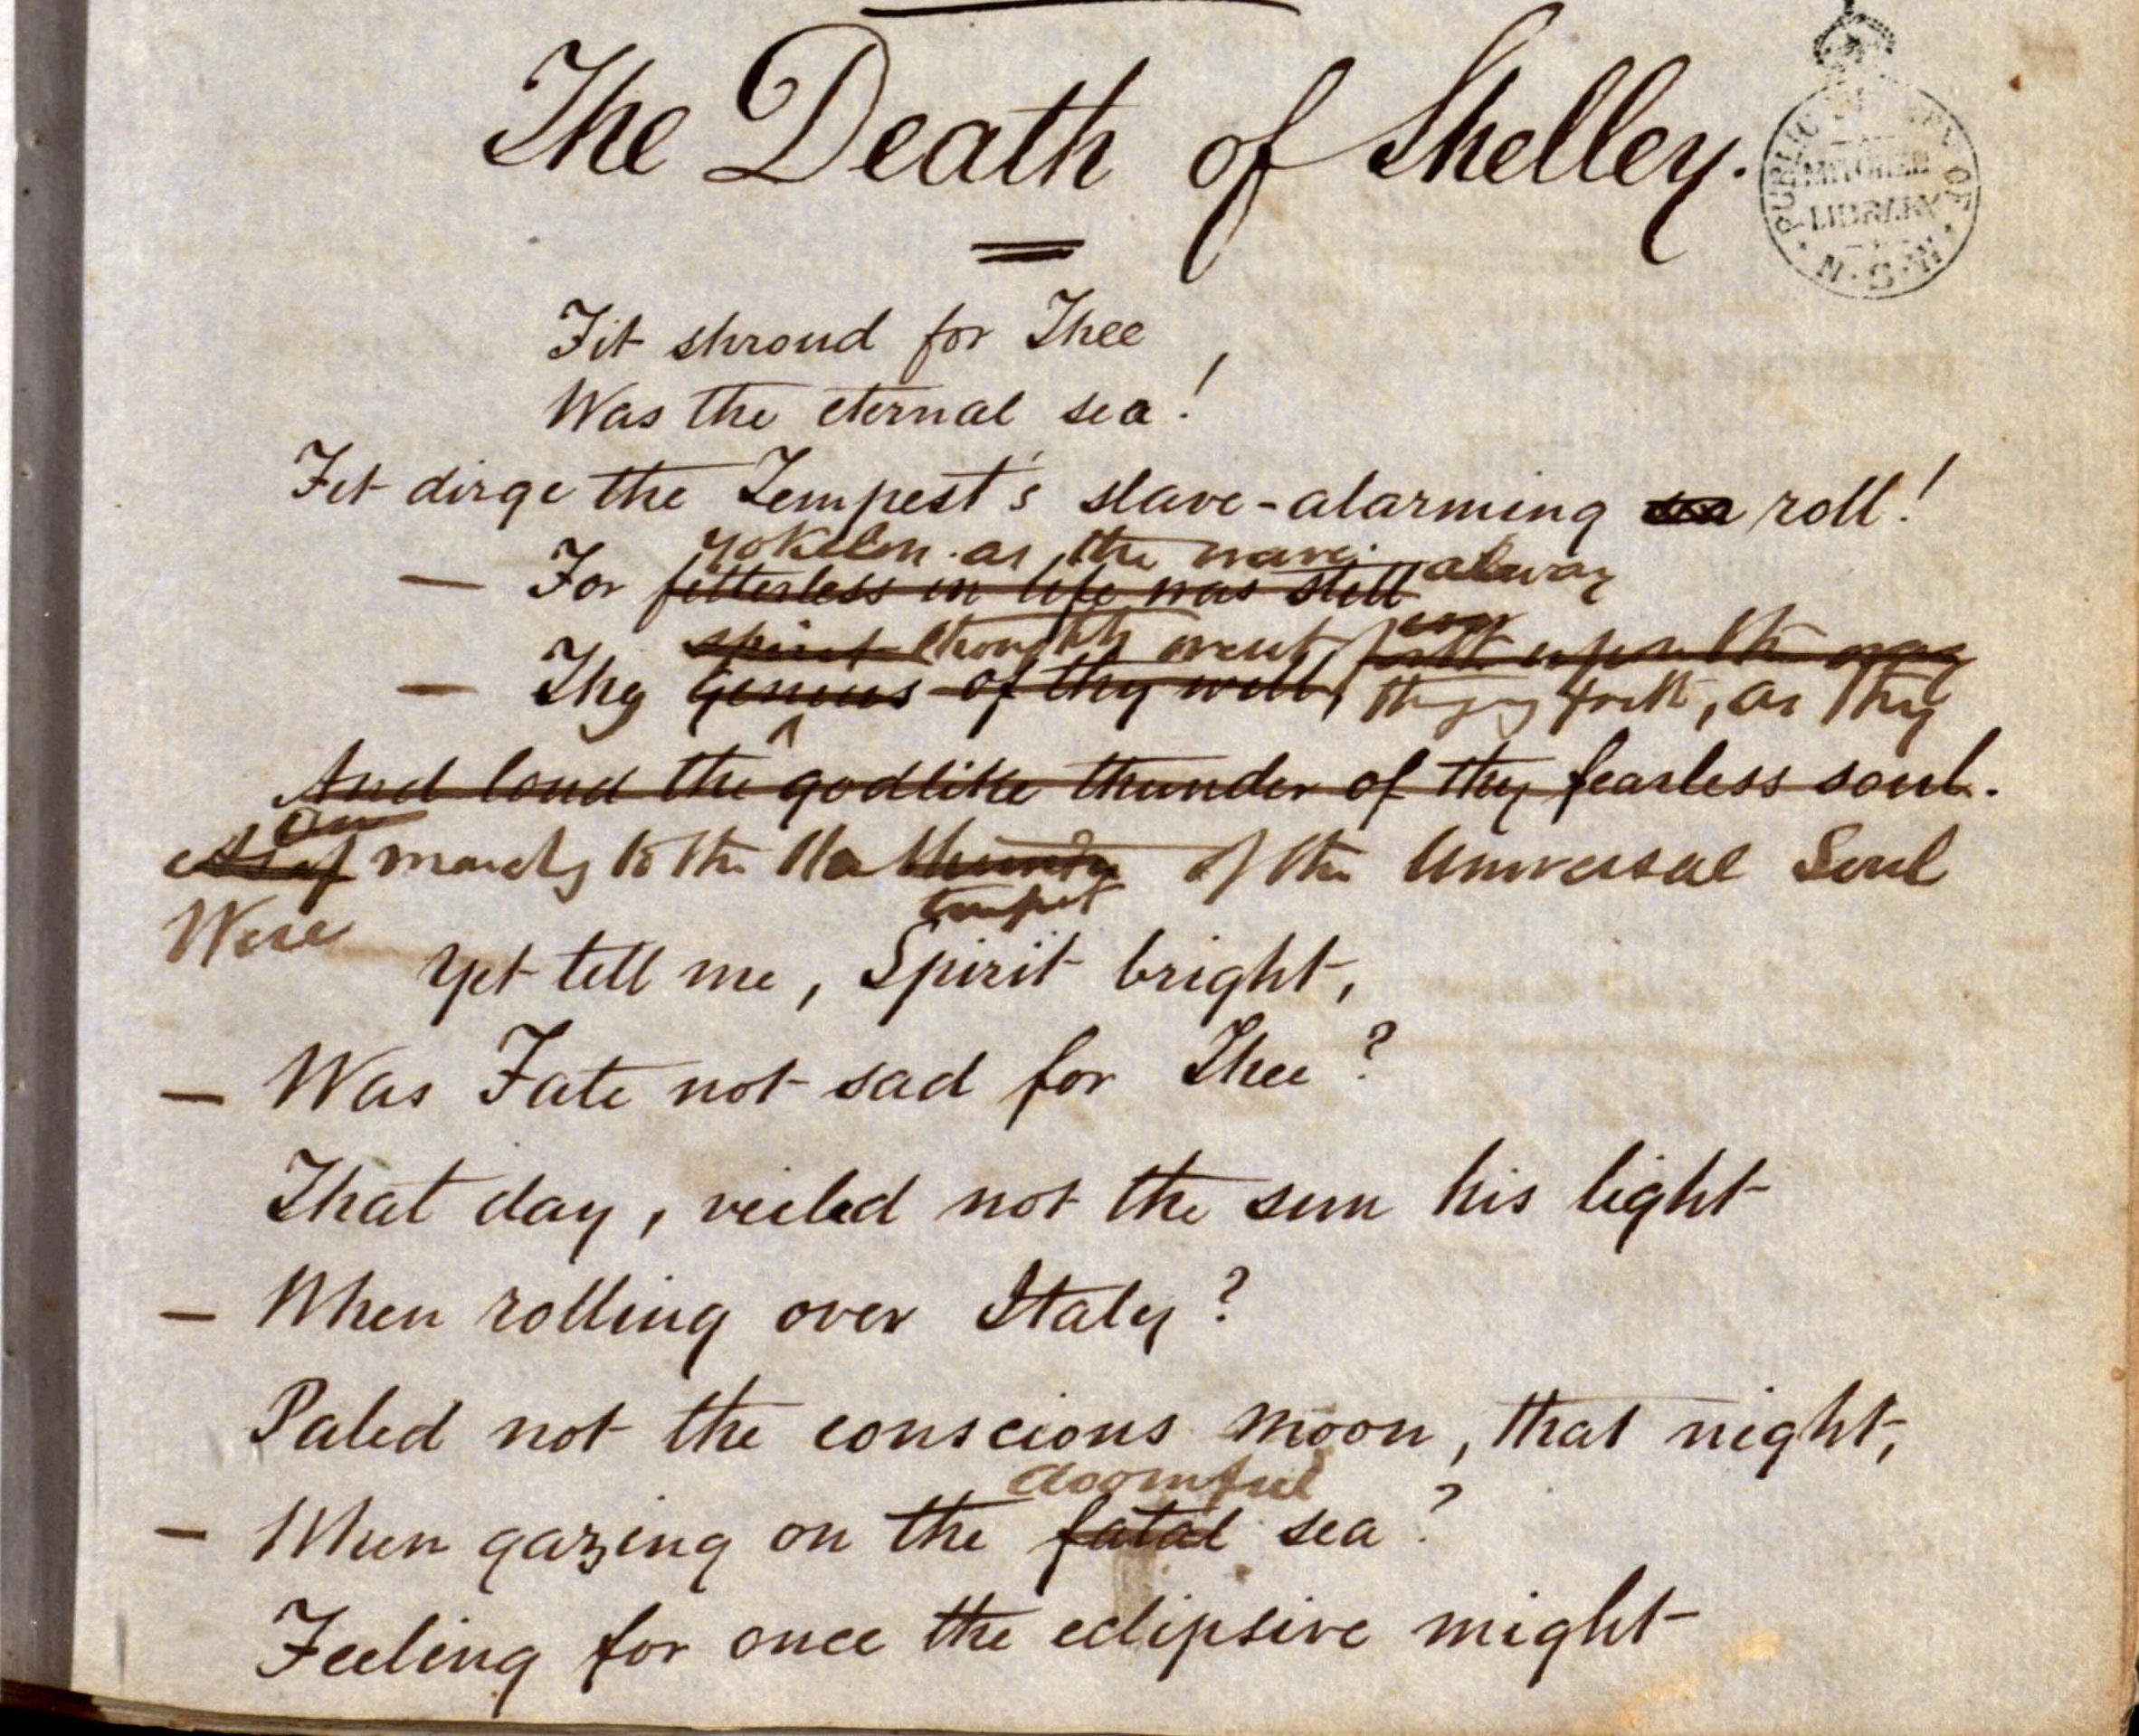 The Death of Shelley.
PUBLIC LIBRARY OF N.S.W.
MITCHELL
LIBRARY
Fit shroud for Thee
Was the eternal sea!
Fit dirge the Tempest's slave-alarming roll!
yokeless as the wave alway
— For fetterless in life was still
ever
spirit thoughts went forth upon the way
— Thy Genius of thy will, forth, as they
And loud the godlike thunder of thy fearless soul.
On
march to the thunder of the Universal Soul
tempest
Were
Yet tell me, Spirit bright,
— Was Fate not sad for Thee?
That day, veiled not the sun his light
— When rolling over Italy?
Paled not the conscious moon, that night,
doomful
— When gazing on the fatal sea?
Feeling for once the eclipsive might